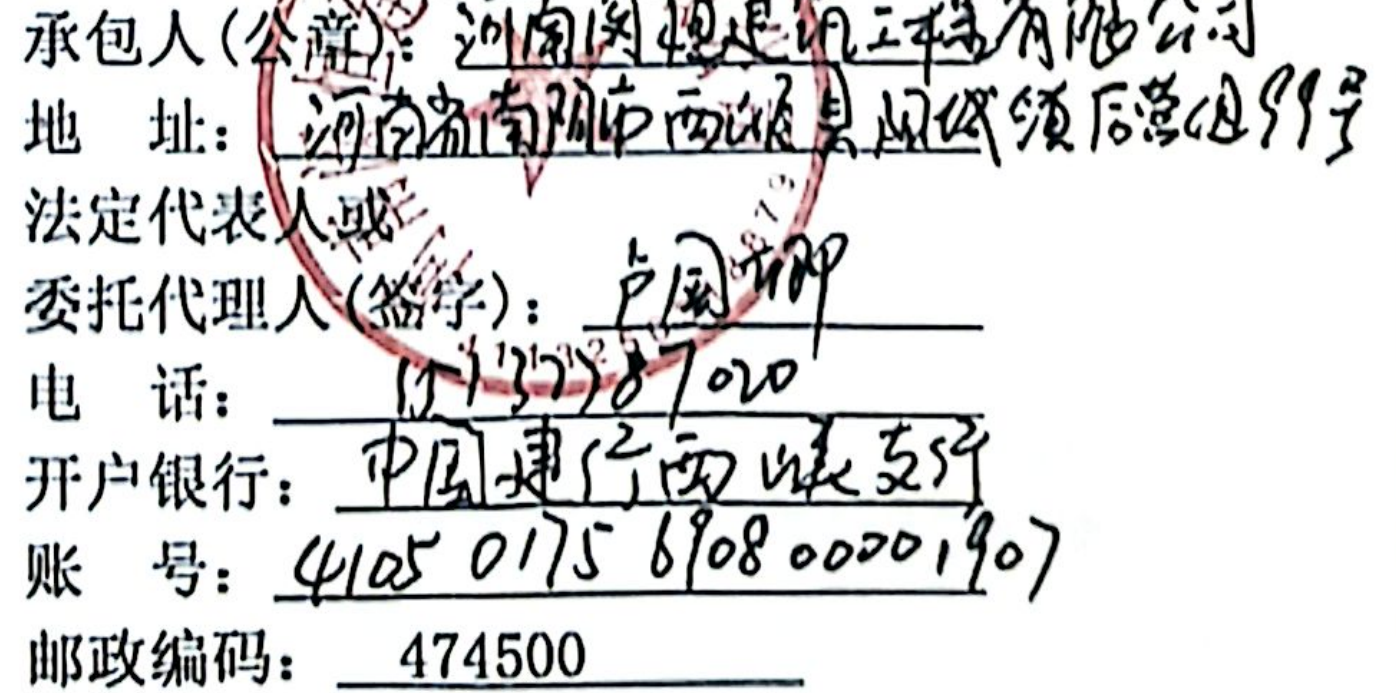 承包人(公章): 河南闵恒建筑工程有限公司
地 址: 河南省南阳市西峡县回车镇后营组99号
法定代表人或
委托代理人(签字): 卢国柳
电 话: 15137387020
开户银行: 中国建行西峡支行
账 号: 4105 0175 6908 00001907
邮政编码: 474500